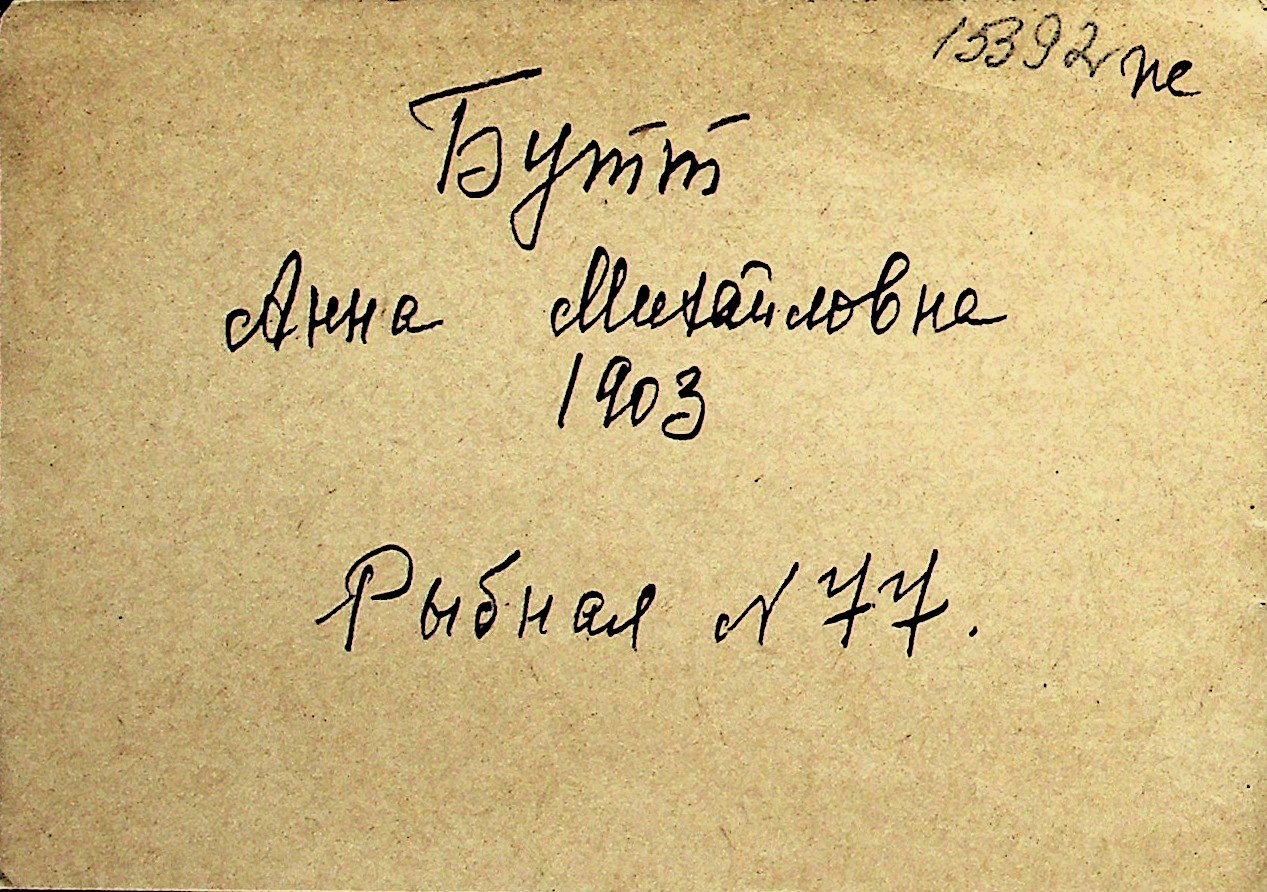 15392 пс
Бутт
Анна Михайловна
1903
Рыбная N 77.